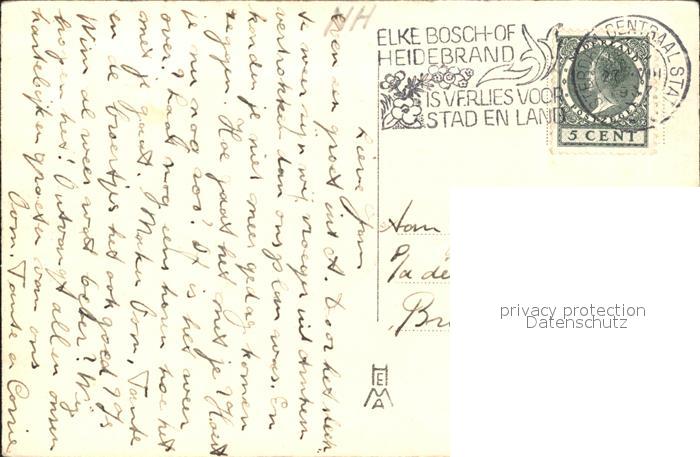 NH
ELKE BOSCH-OF
HEIDEBRAND
IS VERLIES VOOR
STAD EN LAND
CENTRAAL STA
NEDERLAND
5 CENT
Lieve Jan
Even een groet uit A. Door het slech-
te weer zijn wij vroeger uit Arnhem
vertrokken dan ons plan was. En
konden je niet meer gedag komen
zeggen. Hoe gaat het met je? Hoest
je nu nog zoo? Of is het weer
over? Laat nog eens horen hoe het
met je gaat. Maken Oom, Tante
en de broertjes het ook goed? Is
Wim al weer wat beter? Wij
hopen het! Ontvangt allen onzen
hartelijken groeten van ons
Oom, Tante & Corrie
Aan
P/a de
Br
HEMA
privacy protection
Datenschutz